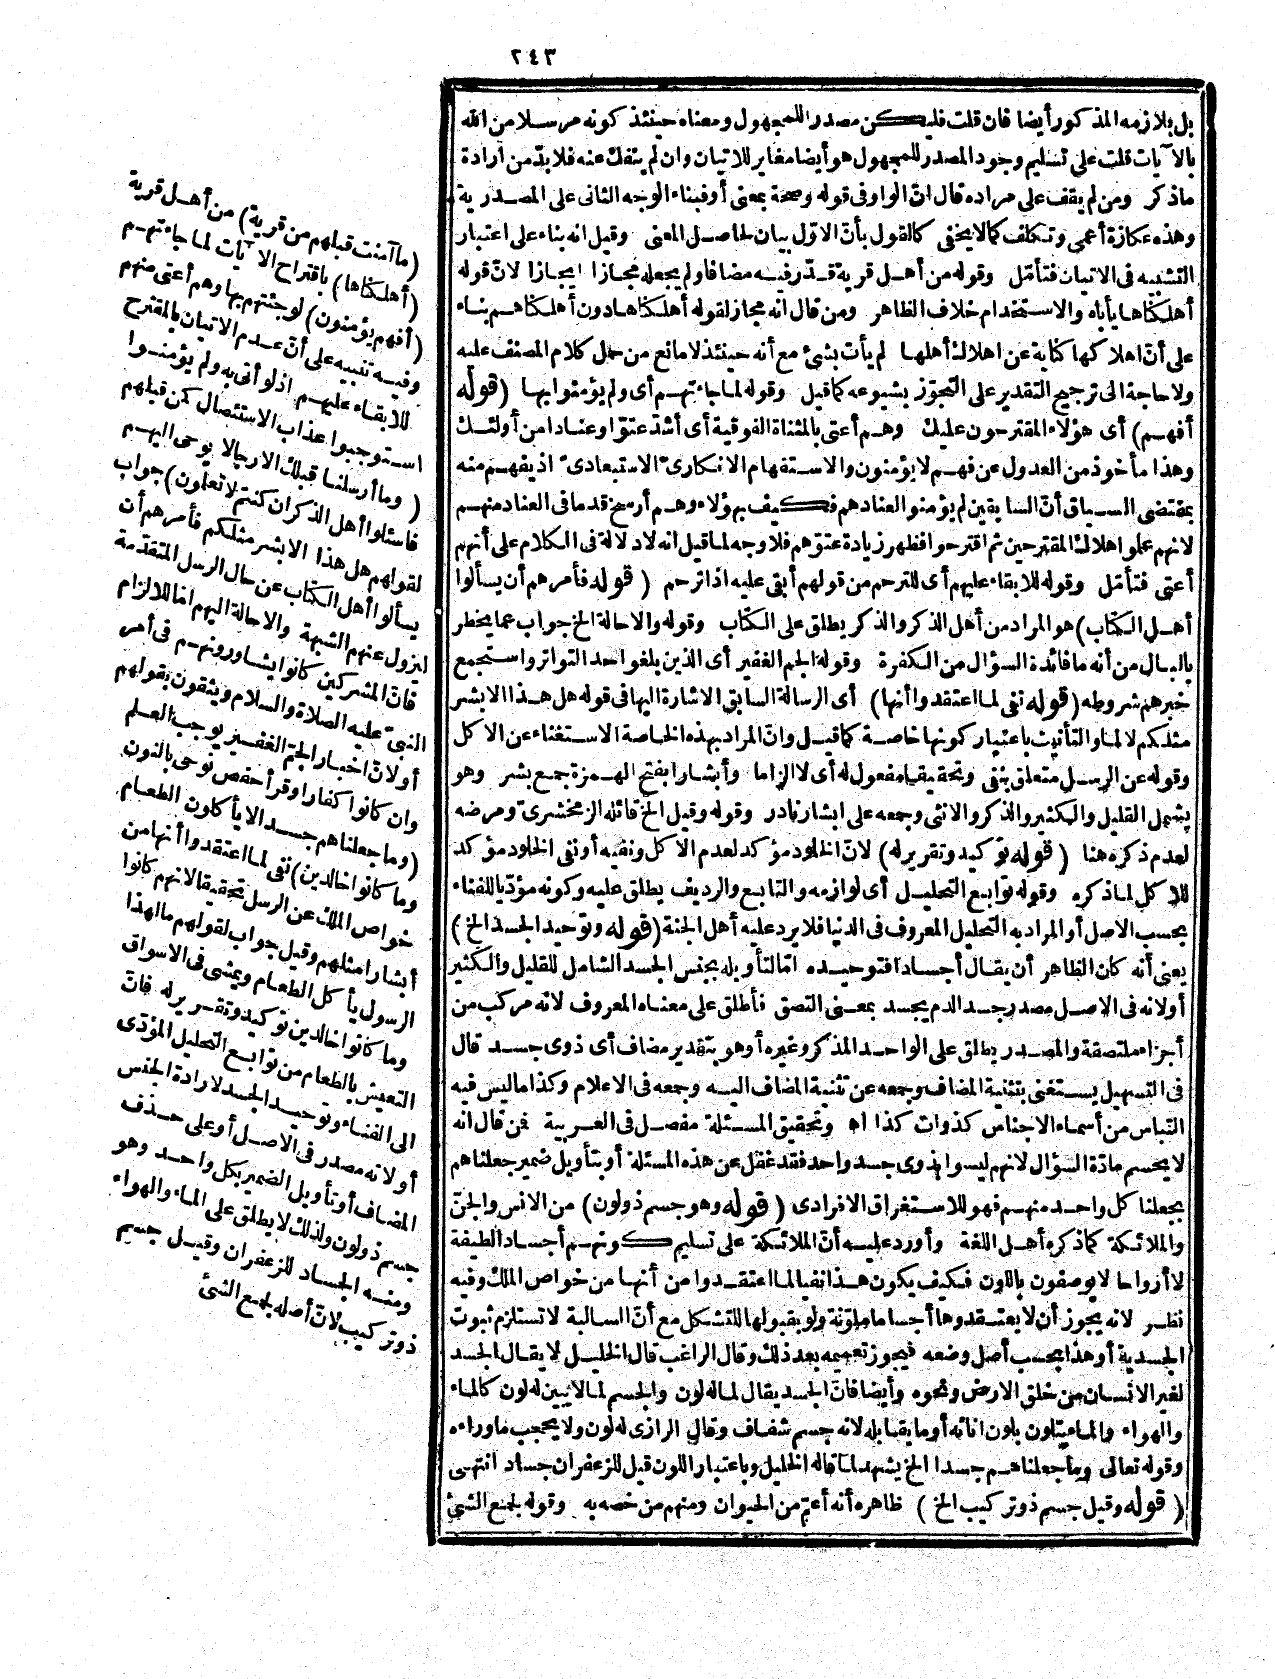 ٢٤٣
بل بلازمه المذكور أيضا فان قلت فليكن مصدر اللمجهول ومعناه حينئذ كونه مرسلا من الله
بالآيات قلت على تسليم وجود المصدر للمجهول هو أيضا مغاير للاتيان وان لم ينفك عنه فلا بدّ من ارادة
ماذكر ومن لم يقف على مراده قال انّ الواو فى قوله وصحة بمعنى أو فبناء الوجه الثانى على المصدرية
وهذه عكازة أعمى وتكلف كما لا يخفى كالقول بأنّ الاوّل بيان لحاصل المعنى وقيل انه بناء على اعتبار
التشبيه فى الاتيان فتأمّل وقوله من أهل قرية قدّر فيه مضافا ولم يجعله مجازا ايجازا لانّ قوله
أهلكناها يأباه والاستخدام خلاف الظاهر ومن قال انه مجاز لقوله أهلكناها دون أهلكناهم بناء
على أنّ اهلاكها كناية عن اهلاك أهلها لم يأت بشئ مع أنه حينئذ لا مانع من حمل كلام المصنف عليه
ولا حاجة الى ترجيح التقدير على التجوّز بشيوعه كما قيل وقوله لما جاءتهم أى ولم يؤمنوا بها (قوله
أفهم) أى هؤلاء المقترحون عليك وهم أعتى بالمثناة الفوقية أى أشدّ عتوّا وعنادا من أولئك
وهذا مأخوذ من العدول عن فهم لا يؤمنون والاستفهام الانكارىّ الاستبعادىّ اذ يفهم منه
بمقتضى السياق أنّ السابقين لم يؤمنوا لعنادهم فكيف بهؤلاء وهم أرسخ قدما فى العناد منهم
لانهم علموا هلاك المقترحين ثم اقترحوا فظهر زيادة عتوّهم فلا وجه لما قيل انه لا دلالة فى الكلام على أنهم
أعتى فتأمّل وقوله للابقاء عليهم أى للترحم من قولهم أبقى عليه اذا ترحم (قوله فأمرهم أن يسألوا
أهل الكتاب) هو المراد من أهل الذكر والذكر يطلق على الكتاب وقوله والاحالة الخ جواب عما يخطر
بالبال من أنه ما فائدة السؤال من الكفرة وقوله الجم الغفير أى الذين بلغوا حد التواتر واستجمع
خبرهم شروطه (قوله نفى لما اعتقدوا أنها) أى الرسالة السابق الاشارة اليها فى قوله هل هذا الا بشر
مثلكم لا لما والتأنيث باعتبار كونها خاصة كما قيل وانّ المراد بهذه الخاصة الاستغناء عن الاكل
وقوله عن الرسل متعلق بنفى وتحقيقا مفعول له أى لا الزاما وأبشارا بفتح الهمزة جمع بشر وهو
يشمل القليل والكثير والذكر والانثى وجمعه على ابشار نادر وقوله وقيل الخ قائله الزمخشرىّ ومرضه
لعدم ذكره هنا (قوله توكيد وتقرير له) لانّ الخلود مؤكد لعدم الاكل ونفيه أو نفى الخلود مؤكد
للاكل لما ذكره وقوله توابع التحليل أى لوازمه والتابع والرديف يطلق عليه وكونه مؤدّيا للفناء
بحسب الاصل أو المراد به التحليل المعروف فى الدنيا فلا يرد عليه أهل الجنة (قوله وتوحيد الجسد الخ)
يعنى أنه كان الظاهر أن يقال أجسادا فتوحيده امّا لتأويله بجنس الجسد الشامل للقليل والكثير
أو لانه فى الاصل مصدر جسد الدم يجسد بمعنى التصق فأطلق على معناه المعروف لانه مركب من
أجزاء ملتصقة والمصدر يطلق على الواحد المذكر وغيره أو هو بتقدير مضاف أى ذوى جسد قال
فى التسهيل يستغنى بتثنية المضاف وجمعه عن تثنية المضاف اليه وجمعه فى الاعلام وكذا ما ليس فيه
التباس من أسماء الاجناس كذوات كذا اه وتحقيق المسئلة مفصل فى العربية فمن قال انه
لا يحسم مادّة السؤال لانهم ليسوا بذوى جسد واحد فقد غفل عن هذه المسئلة أو بتأويل ضمير جعلناهم
بجعلنا كل واحد منهم فهو للاستغراق الافرادى (قوله وهو جسم ذولون) من الانس والجنّ
والملائكة كما ذكره أهل اللغة وأورد عليه أنّ الملائكة على تسليم كونهم أجسادا لطيفة
لا أرواحا لا يوصفون باللون فكيف يكون هذا نفيا لما اعتقدوا من أنها من خواص الملك وفيه
نظر لانه يجوز أن لا يعتقدوها أجساما ملوّنة ولو بقبولها للتشكل مع أنّ السالبة لا تستلزم ثبوت
الجسدية أو هذا بحسب أصل وضعه فيجوز تعميمه بعد ذلك وقال الراغب قال الخليل لا يقال الجسد
لغير الانسان من خلق الارض ونحوه وأيضا فانّ الجسد يقال لما له لون والجسم لما لا يبين له لون كالماء
والهواء والماء يتلون بلون انائه أو ما يقابله لانه جسم شفاف وقال الرازى له لون ولا يحجب ما وراءه
وقوله تعالى وما جعلناهم جسدا الخ يشهد لما قاله الخليل وباعتبار اللون قيل للزعفران جساد انتهى
(قوله وقيل جسم ذوتركيب الخ) ظاهره أنه أعمّ من الحيوان ومنهم من خصه به وقوله لجمع الشئ
(ما آمنت قبلهم من قرية) من أهل قرية
(أهلكناها) باقتراح الآيات لما جاءتهم
(أفهم يؤمنون) لو جئتهم بها وهم أعتى منهم
وفيه تنبيه على أنّ عدم الاتيان بالمقترح
للابقاء عليهم اذ لو أتى به ولم يؤمنوا
استوجبوا عذاب الاستئصال كمن قبلهم
(وما أرسلنا قبلك الا رجالا يوحى اليهم
فاسئلوا أهل الذكر ان كنتم لا تعلمون) جواب
لقولهم هل هذا الا بشر مثلكم فأمرهم أن
يسألوا أهل الكتاب عن حال الرسل المتقدّمة
ليزول عنهم الشبهة والاحالة اليهم امّا للالزام
فانّ المشركين كانوا يشاورونهم فى أمر
النبىّ عليه الصلاة والسلام ويثقون بقولهم
أو لانّ اخبار الجمّ الغفير يوجب العلم
وان كانوا كفارا وقرأ حفص نوحى بالنون
(وما جعلناهم جسدا لا يأكلون الطعام
وما كانوا خالدين) نفى لما اعتقدوا أنها من
خواص الملك عن الرسل تحقيقا لانهم كانوا
أبشارا مثلهم وقيل جواب لقولهم مالهذا
الرسول يأكل الطعام ويمشى فى الاسواق
وما كانوا خالدين توكيد وتقرير له فانّ
التعيش بالطعام من توابع التحليل المؤدّى
الى الفناء وتوحيد الجسد لارادة الجنس
أو لانه مصدر فى الاصل أو على حذف
المضاف أو تأويل الضمير بكل واحد وهو
جسم ذولون ولذلك لا يطلق على الماء والهواء
ومنه الجساد للزعفران وقيل جسم
ذوتركيب لانّ أصله لجمع الشئ